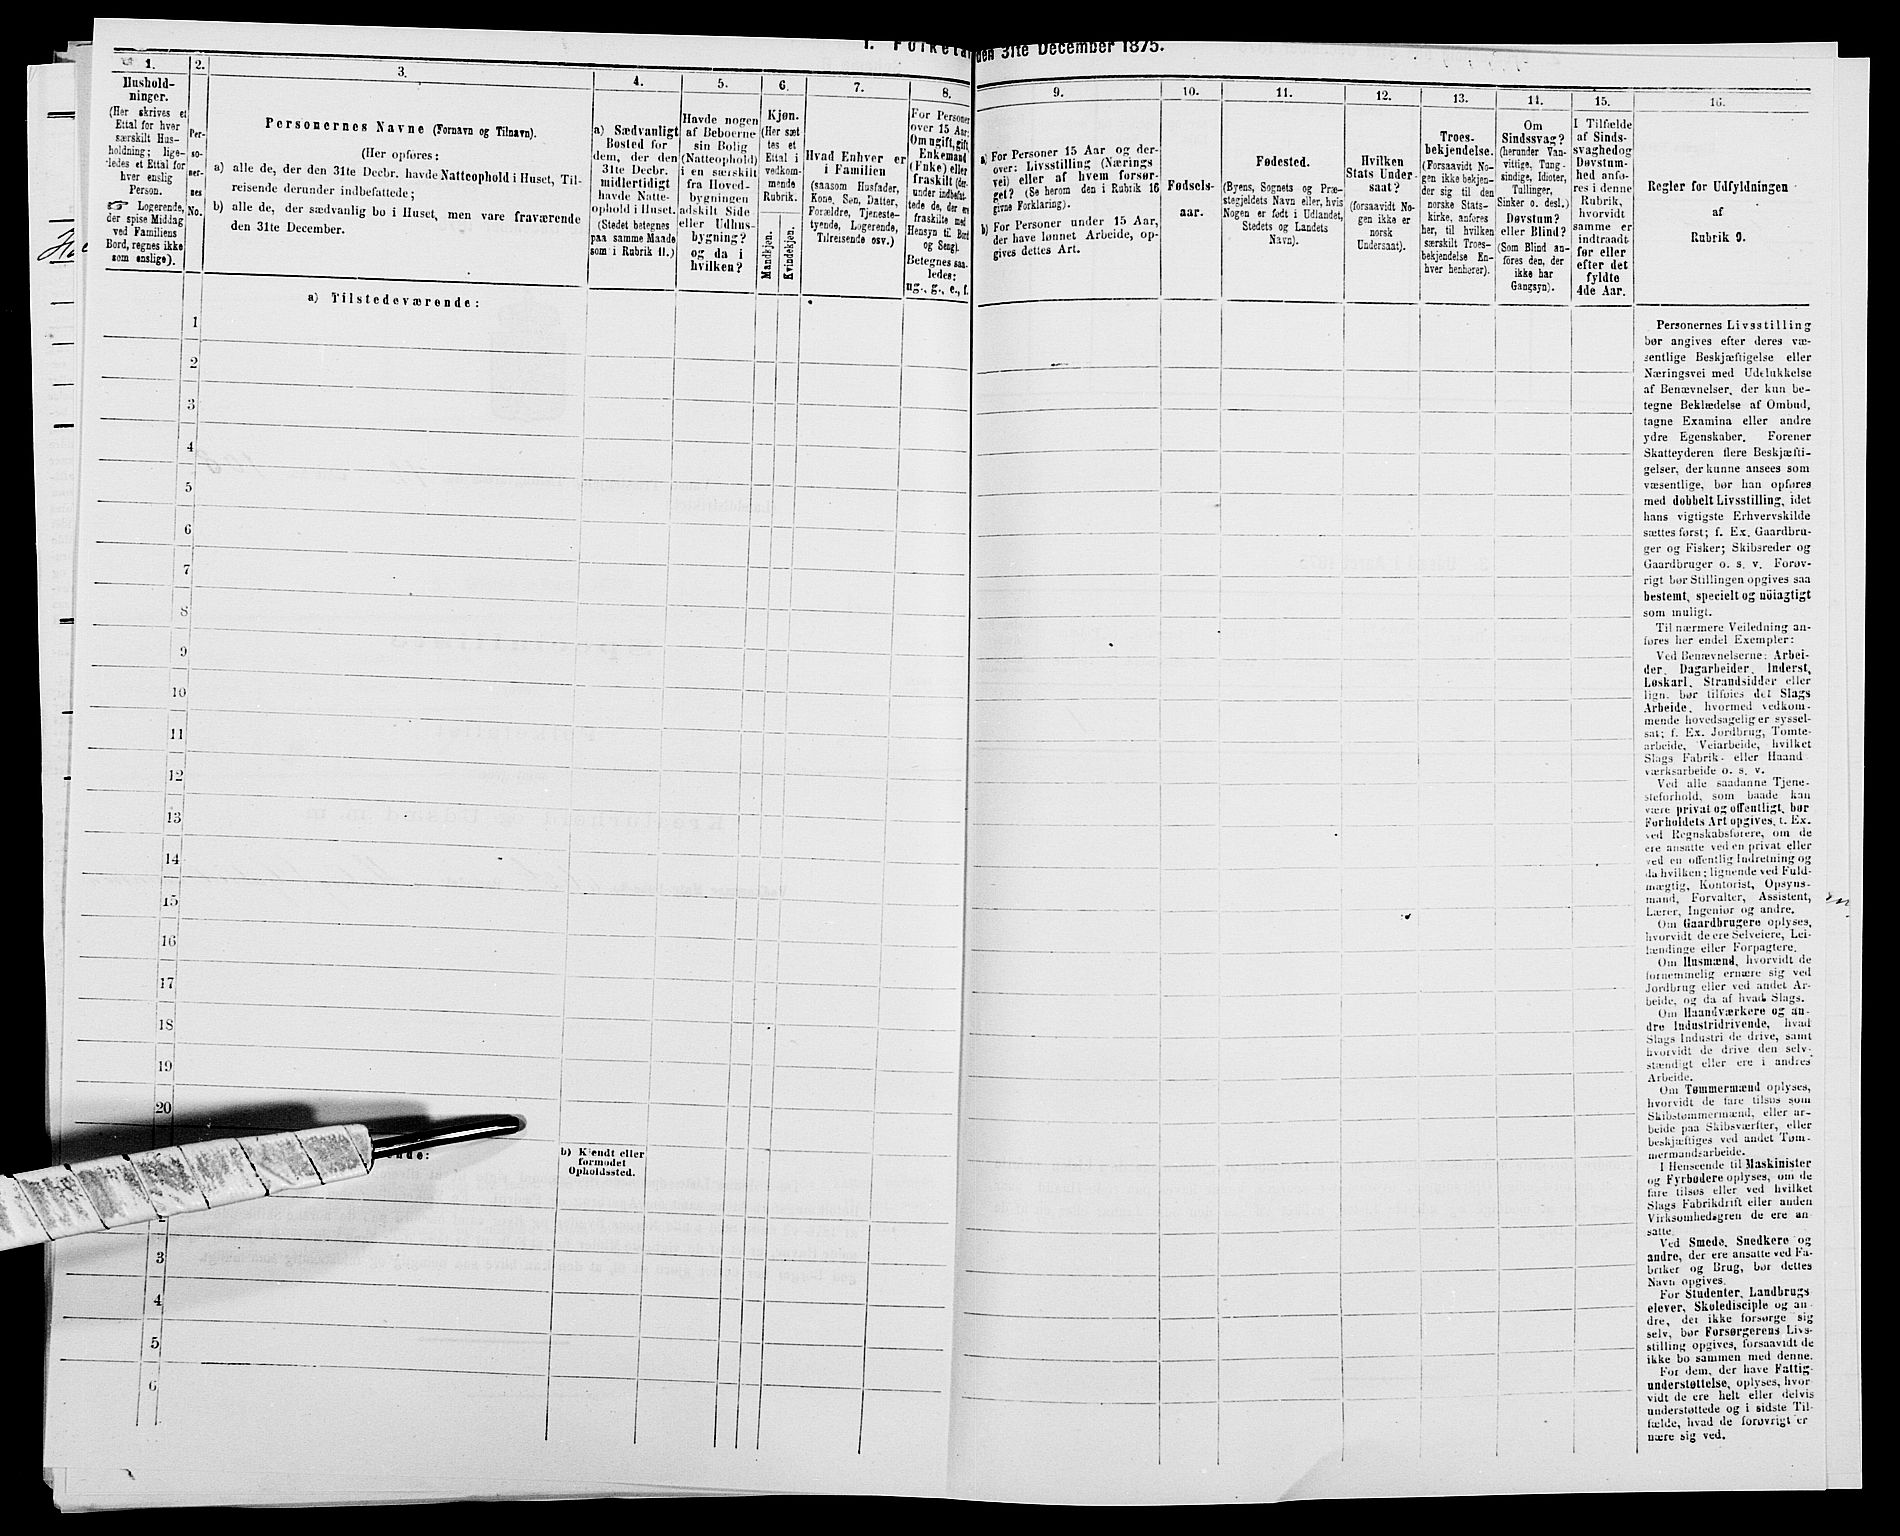 den 31te December 1875.
1.
Hushold-
ninger.
(Her skrives et
Ettal for hver
særskilt Hus-
holdning; lige-
ledes et Ettal for
hver enslig
Person.
☞ Logerende,
der spise Middag
ved Familiens
Bord, regnes ikke
som enslige).
2.
Per-
so-
ner-
nes
No.
3.
Personernes Navne (Fornavn og Tilnavn).
(Her opføres:
a) alle de, der den 31te Decbr. havde Natteophold i Huset, Til-
reisende derunder indbefattede;
b) alle de, der sædvanlig bo i Huset, men vare fraværende
den 31te December.
4.
a) Sædvanligt
Bosted for
dem, der den
31te Decbr.
midlertidigt
havde Natte-
ophold i Huset.
(Stedet betegnes
paa samme Maade
som i Rubrik 11.)
5.
Havde nogen
af Beboerne
sin Bolig
(Natteophold)
i en særskilt
fra Hoved-
bygningen
adskilt Side
eller Udhus-
bygning?
og da i
hvilken?
6.
Kjøn.
(Her sæt
tes et
Ettal i
vedkom-
mende
Rubrik.
Mandkjøn.
Kvindekjøn.
7.
Hvad Enhver er
i Familien
(saasom Husfader,
Kone, Søn, Datter,
Forældre, Tjeneste-
tyende, Logerende,
Tilreisende osv.)
8.
For Personer
over 15 Aar:
Om ugift, gift,
Enkemand
(Enke) eller
fraskilt (der-
under indbefat-
tede de, der ere
fraskilte med
Hensyn til Bord
og Seng).
Betegnes saa-
ledes:
ug., g., e., f.
9.
a) For Personer 15 Aar og der-
over: Livsstilling (Nærings
vei) eller af hvem forsør-
get? (Se herom den i Rubrik 16
givne Forklaring).
b) For Personer under 15 Aar,
der have lønnet Arbeide, op-
gives dettes Art.
10.
Fødsels-
aar.
11.
Fødested.
(Byens, Sognets og Præ-
stegjeldets Navn eller, hvis
Nogen er født i Udlandet,
Stedets og Landets
Navn).
12.
Hvilken
Stats Under
saat?
(forsaavidt No-
gen ikke er
norsk
Undersaat).
13.
Troes-
bekjendelse.
(Forsaavidt No-
gen ikke bekjen-
der sig til den
norske Stats-
kirke, anføres
her, til hvilken
særskilt Troes-
bekjendelse En-
hver henhører).
14.
Om
Sindssvag?
(herunder Van-
vittige, Tung-
sindige, Idioter,
Tullinger,
Sinker o. desl.)
Døvstum?
eller Blind?
(Som Blind an-
føres den, der
ikke har
Gangsyn).
15.
I Tilfælde
af Sinds-
svaghed og
Døvstum-
hed anfø-
res i denne
Rubrik,
hvorvidt
samme er
indtraadt
før eller
efter det
fyldte
4de Aar.
16.
Regler for Udfyldningen
af
Rubrik 9.
a) Tilstedeværende:
1
2
3
4
5
6
7
8
9
10
11
12
13
14
15
16
17
18
19
20
b) Kjendt eller
formodet
Opholdssted.
2
3
4
5
6
Personernes Livsstilling
bør angives efter deres væ-
sentlige Beskjæftigelse eller
Næringsvei med Udelukkelse
af Benævnelser, der kun be-
tegne Beklædelse af Ombud,
tagne Examina eller andre
ydre Egenskaber. Forener
Skatteyderen flere Beskjæfti-
gelser, der kunne ansees som
væsentlige, bør han opføres
med dobbelt Livsstilling, idet
hans vigtigste Erhvervskilde
sættes først; f. Ex. Gaardbru-
ger og Fisker; Skibsreder og
Gaardbruger o. s. v. Forøv-
rigt bør Stillingen opgives saa
bestemt, specielt og nöiagtigt
som muligt.
Til nærmere Veiledning an-
føres her endel Exempler:
Ved Benævnelserne: Arbei-
der, Dagarbeider, Inderst,
Løskarl, Strandsidder eller
lign. bør tilføies det Slags
Arbeide, hvormed vedkom-
mende hovedsagelig er syssel-
sat; f. Ex. Jordbrug, Tomte-
arbeide, Veiarbeide, hvilket
Slags Fabrik- eller Haand
værksarbeide o. s. v.
Ved alle saadanne Tjene-
steforhold, som baade kan
være privat og offentligt, bør
Forholdets Art opgives, t. Ex.
ved Regnskabsførere, om de
ere ansatte ved en privat eller
ved en offentlig Indretning og
da hvilken; lignende ved Fuld-
mægtig, Kontorist, Opsyns-
mand, Forvalter, Assistent,
Lærer, Ingeniør og andre.
Om Gaardbrugere oplyses,
hvorvidt de ere Selveiere, Lei-
lændinge eller Forpagtere.
Om Husmænd, hvorvidt de
fornemmelig ernære sig ved
Jordbrug eller ved andet Ar-
beide, og da af hvad Slags.
Om Haandværkere og an-
dre Industridrivende, hvad
Slags Industri de drive, samt
hvorvidt de drive den selv-
stændigt eller ere i andres
Arbeide.
Om Tømmermænd oplyses,
hvorvidt de fare tilsøs som
Skibstømmermænd, eller ar-
beide paa Skibsværfter, eller
beskjæftiges ved andet Tøm-
mermandsarbeide.
I Henseende til Maskinister
og Fyrbødere oplyses, om de
fare tilsøs eller ved hvilket
Slags Fabrikdrift eller anden
Virksomhedsgren de ere an-
satte.
Ved Smede, Snedkere og
andre, der ere ansatte ved Fa-
briker og Brug, bør dettes
Navn opgives.
For Studenter, Landbrugs
elever, Skoledisciple og an-
dre, der ikke forsørge sig
selv, bør Forsørgerens Livs-
stilling opgives, forsaavidt de
ikke bo sammen med denne.
For dem, der have Fattig-
understøttelse, oplyses, hvor-
vidt de ere helt eller delvis
understøttede og i sidste Til-
fælde, hvad de forøvrigt er
nære sig ved.